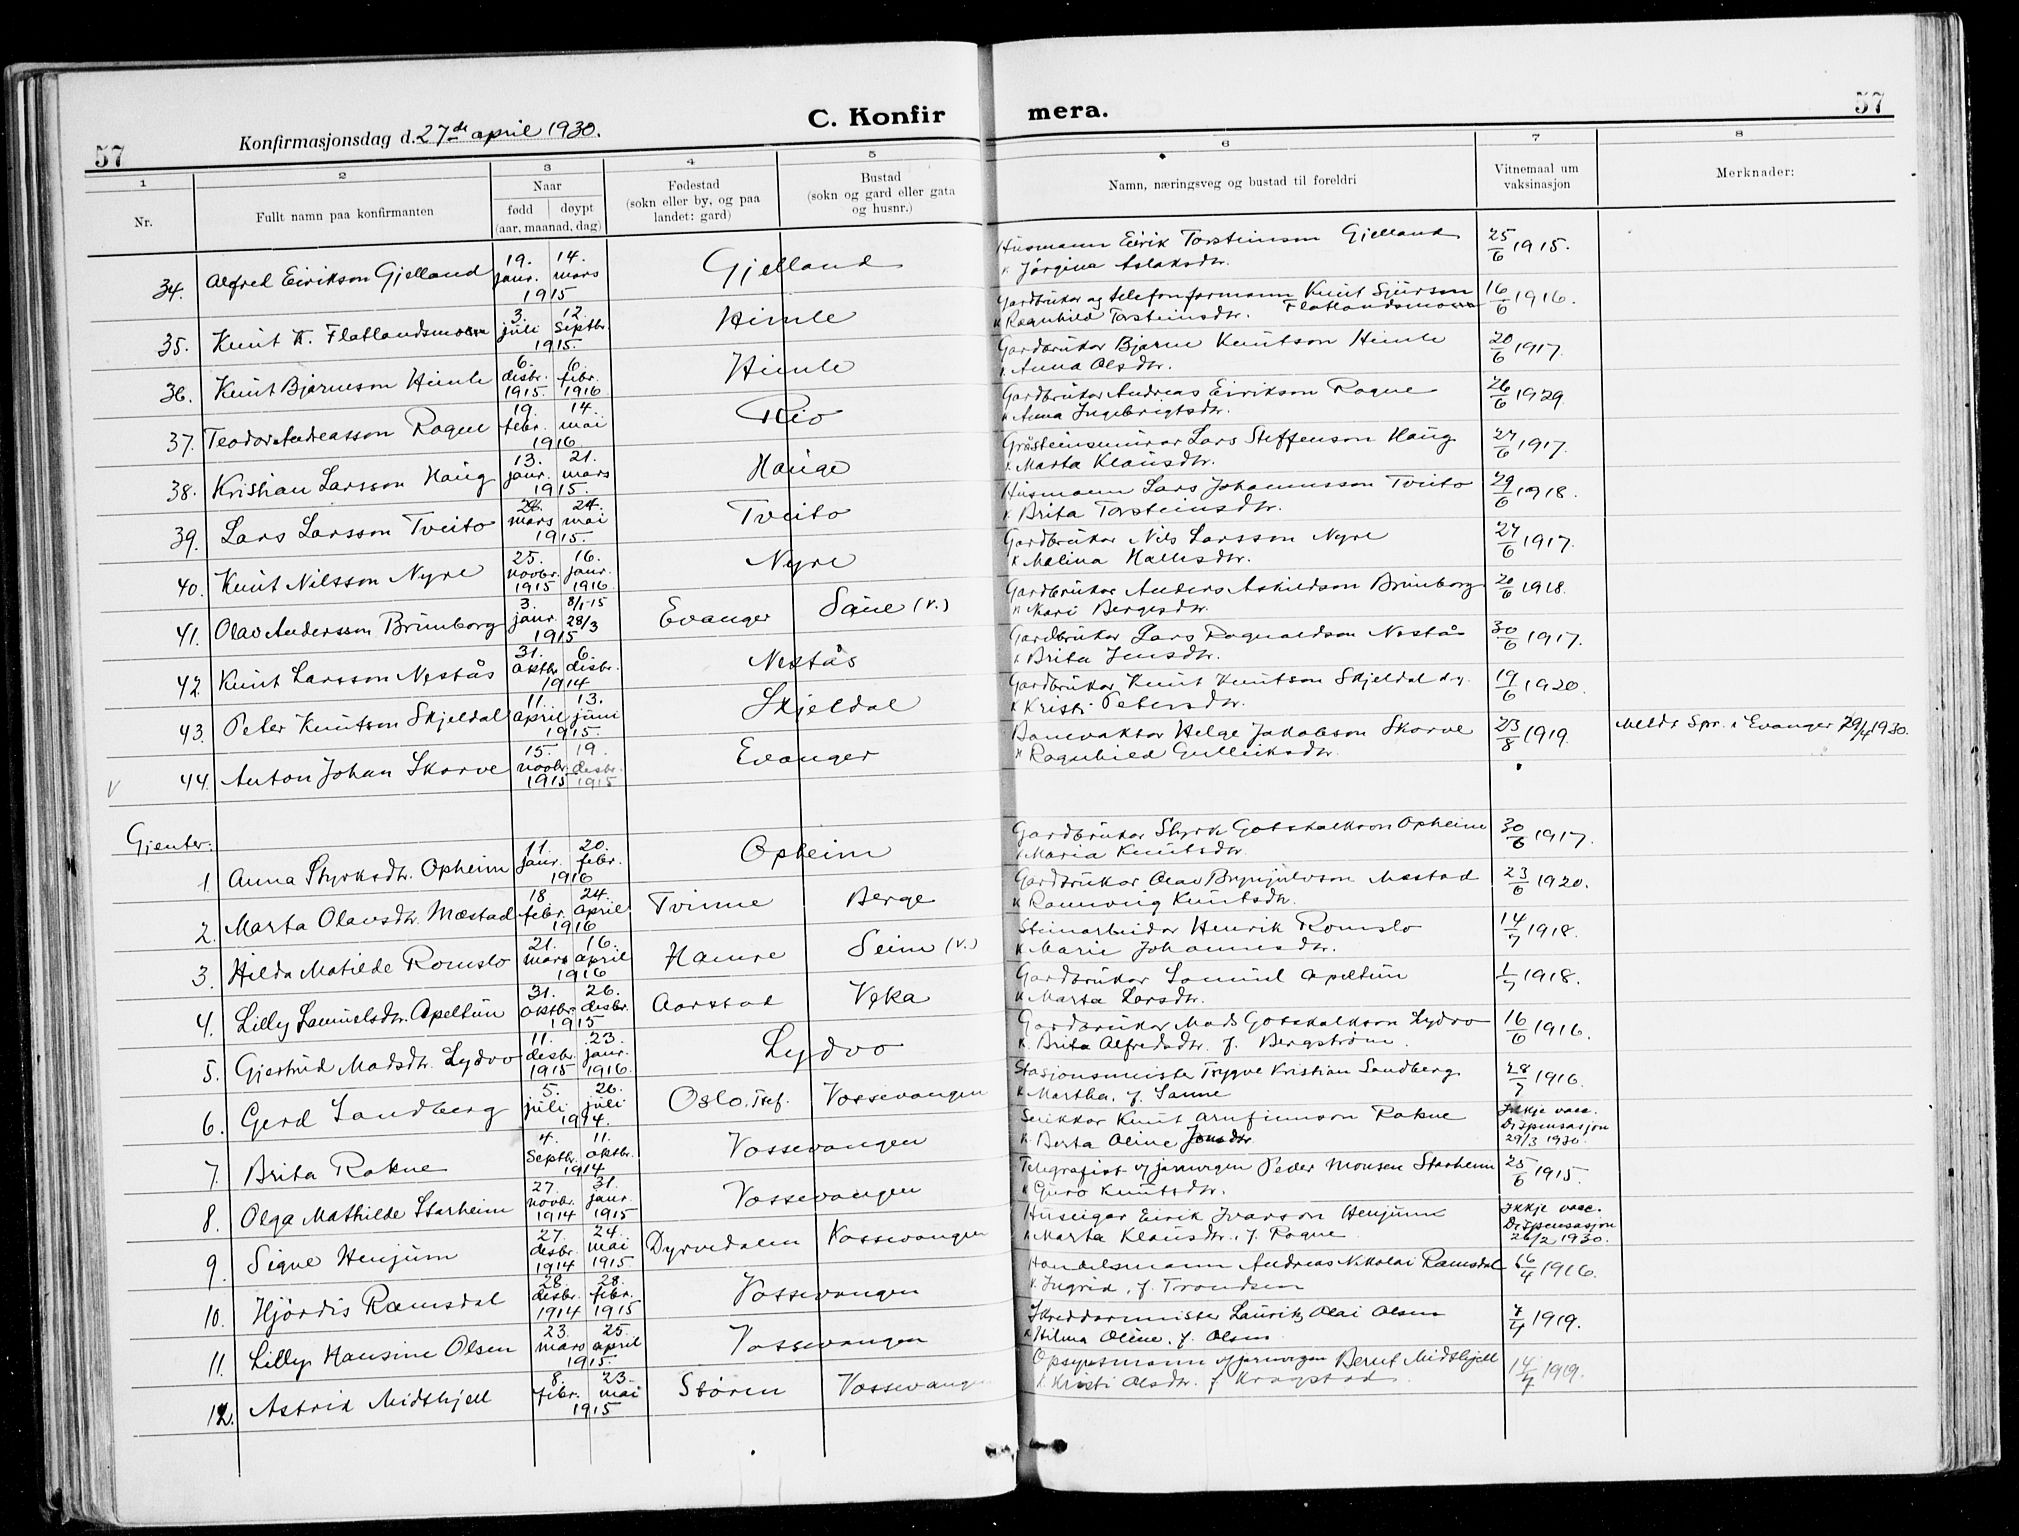 57
Konfirmasjonsdag d. 27de april 1930.
C. Konfir
mera.
57
1
2
3
4
5
6
7
8
Nr.
Fullt namn paa konfirmanten
Naar
fødd
døypt
(aar, maanad, dag)
Fødestad
(sokn eller by, og paa
landet: gard)
Bustad
(sokn og gard eller gata
og husnr.)
Namn, næringsveg og bustad til foreldri
Vitnemaal um
vaksinasjon
Merknader:
34. Alfred Eirikson Gjelland 19. janr. 14. mars 1915 Gjelland Husmann Eirik Torsteinson Gjelland 25/6 1915.
k. Jörgina Aslaksdtr.
35. Knut K. Flatlandsmoen 3. juli 12. Septbr. 1915. Himle Gardbrukar og telefonformann Knut Sjurson Flatlandsmoen 16/6 1916.
k. Ragnhild Torsteinsdtr.
36. Knut Bjarneson Himle 6. desbr. 1915. 6. febr. 1916 Himle Gardbrukar Bjarne Knutson Himle 20/6 1917.
k. Anna Olsdtr.
37. Teodor Andreasson Rogne 19. febr. 14. mai 1916 Rio Gardbrukar Andreas Eirikson Rogne 26/6 1929.
k. Anna Ingebrigtsdtr.
38. Kristian Larsson Haug 13. janr. 21. mars 1915. Hauge Gråsteinsmurar Lars Steffenson Haug 27/6 1917.
k. Marta Klausdtr.
39. Lars Larsson Tveito mars 24. mai 1915. Tveito Husmann Lars Johannesson Tveito 29/6 1918.
k. Brita Torsteinsdtr.
40. Knut Nilsson Nyre 25. novbr. 1915 16. janr. 1916 Nyre Gardbrukar Nils Larsson Nyre 27/6 1917.
k. Malina Hallesdtr.
41. Olav Andersson Brunborg 3. janr. 8/1-15 28/3 1915 Evanger Saue (v.) Gardbrukar Anders Askildson Brunborg 20/6 1918.
k. Mari Bergesdtr.
42. Knut Larsson Nestås 31. oktbr. 6. desbr. 1914 Nestås Gardbrukar Lars Ragnaldson Nestås 30/6 1917.
k. Brita Jensdtr.
43. Peter Knutson Skjeldal 11. april 13. juni 1915. Skjeldal Gardbrukar Knut Knutson Skjeldal d.y. 19/6 1920.
k. Kristi Petersdtr.
v 44. Anton Johan Skorve 15. novbr. 1915 19. desbr. 1915 Evanger Banevaktar Helge Jakobson Skorve 23/8 1919. Meldt Spr. i Evanger 29/4 1930.
k. Ragnhild Gulleiksdtr.
Gjenter:
1. Anna Styrksdtr. Opheim 11. janr. 20. febr. 1916 Opheim Gardbrukar Styrk Gotskalkson Opheim 30/6 1917.
k. Maria Knutsdtr.
2. Marta Olavsdtr. Mæstad 18. febr. 24. april 1916 Tvinne Berge Gardbrukar Olav Brynjulvson Mæstad 23/6 1920.
k. Rannveig Knutsdtr.
3. Hilda Matilde Romslo 21. mars 16. april 1916 Hamre Seim (v.) Steinarbeidar Henrik Romslo 14/7 1918.
k. Marie Johannesdtr.
4. Lilly Samuelsdtr. Apeltun 31. oktbr. 26. desbr. 1915 Aarstad Veka Gardbrukar Samuel Apeltun 1/7 1918.
k. Marta Larsdtr.
5. Gjertrud Madsdtr. Lydvo 11. desbr. 1915 23. janr. 1916. Lydvo Gardbrukar Mads Gotskalkson Lydvo 16/6 1916.
k. Brita Alfredsdtr. f. Bergström.
6. Gerd Sandberg 5. juli 26. juli 1914. Oslo. Tref. Vossevangen Stasjonsmeister Trygve Kristian Sandberg 28/7 1916.
k. Martha, f. Sanne
7. Brita Rokne 4. Septbr. 11. oktbr. 1914 Vossevangen Knut Arnfinnson Rokne Ikkje vacc. Dispensasjon 29/3 1930.
k. Berta Oline Jonsdtr
8. Olga Mathilde Starheim 27. novbr. 1914 31. janr. 1915 Vossevangen Telegrafist v/ jarnvegen Peder Monsen Starheim 25/6 1915.
k. Guro Knutsdtr.
9. Signe Henjum 27. desbr. 1914 24. mai 1915 Dyrvedalen Vossevangen Huseigar Eirik Ivarson Henjum Ikkje vacc. Dispensasjon 26/2 1930.
k. Marta Klausdtr., f. Rogne
10. Hjördis Ramsdal 28. desbr. 1914 28. febr. 1915 Vossevangen Handelsmann Andreas Nikolai Ramsdal 6/4 1916.
k. Ingrid, f. Trondsen
11. Lilly Hansine Olsen 23. mars 25. april 1915. Vossevangen Skreddarmeister Lauritz Olai Olsen 7/4 1919.
k. Hilma Oline, f. Olsen
12. Astrid Midtkjell 8. febr. 23. mai 1915 Stören Vossevangen Opsynsmann v/ jarnvegen Bernt Midtkjell 14/7 1919.
k. Kristi Olsdtr. f. Krogstad